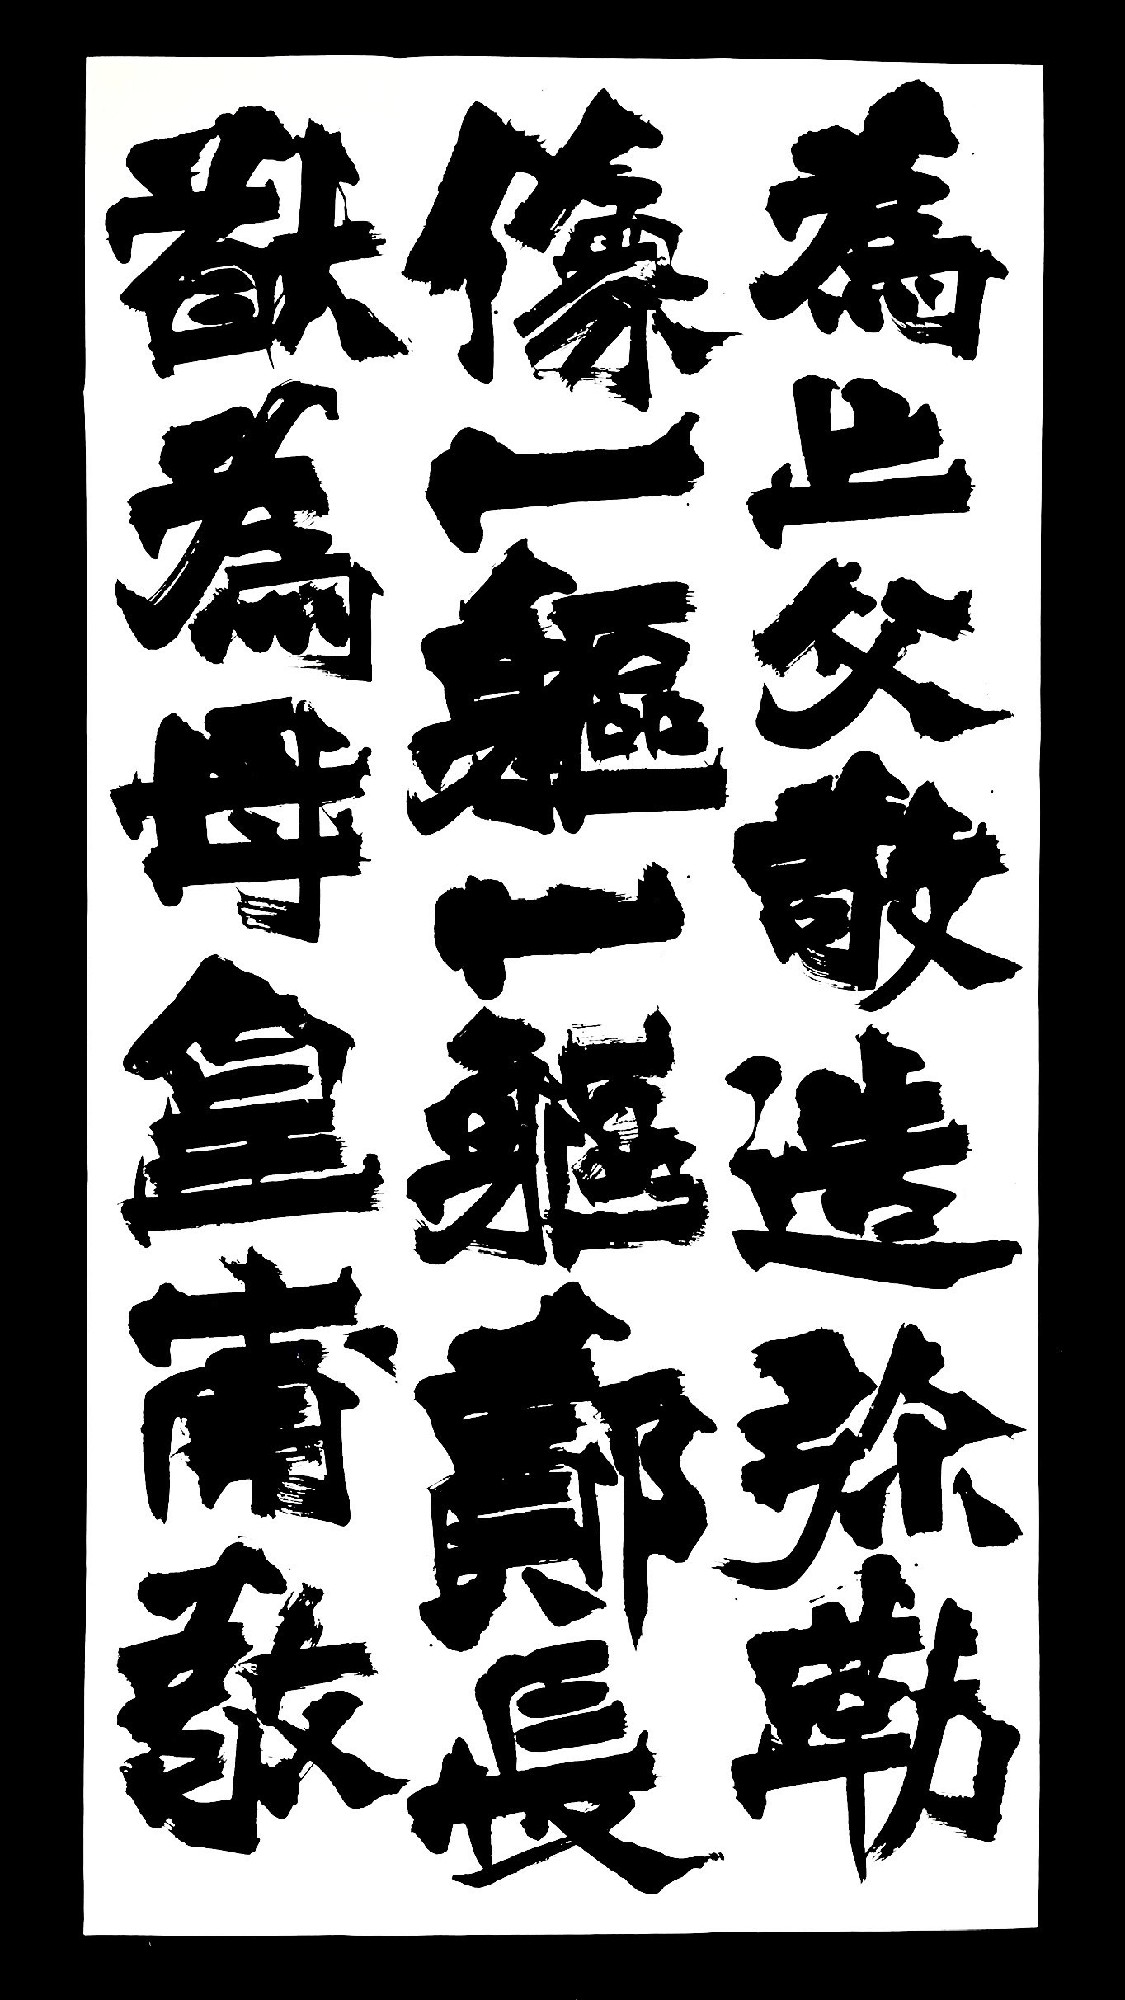 為亡父敬造弥勒
像一軀一軀鄭長
猷為母皇甫敬